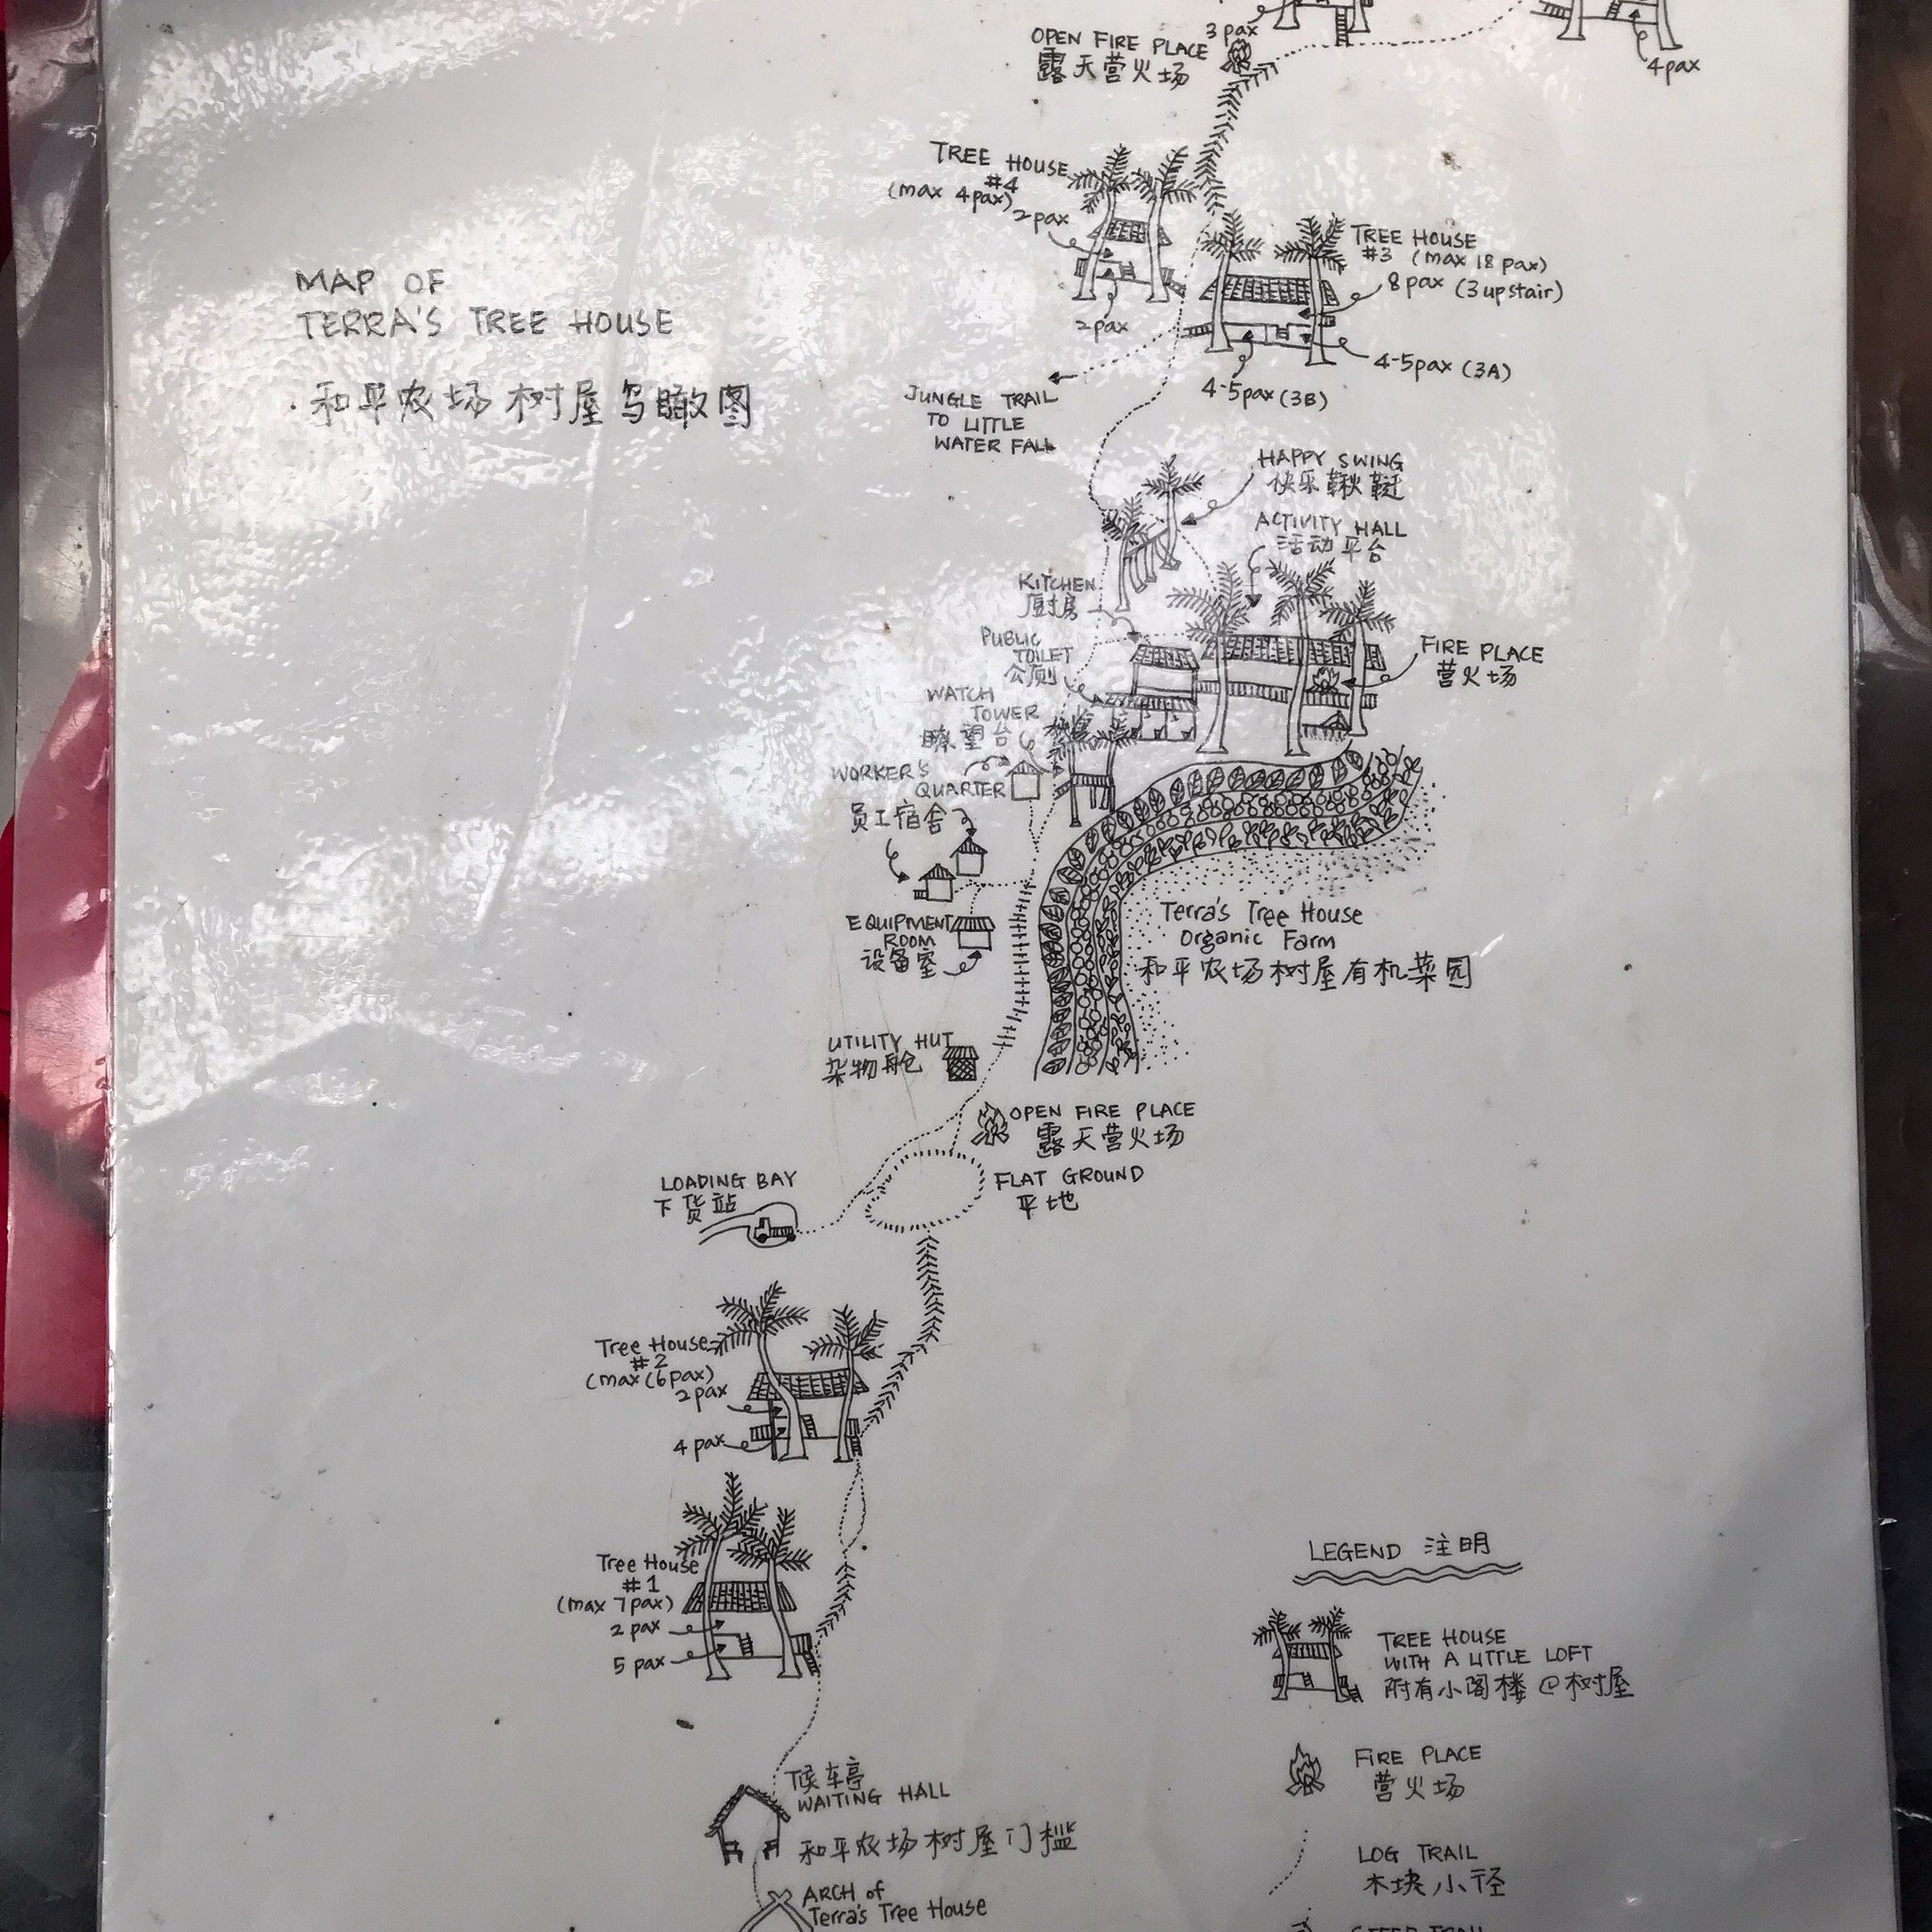 3 pax
OPEN FIRE PLACE
露天营火场
4pax
TREE HOUSE
#4
(max 4pax)
2pax
2pax
TREE HOUSE
#3 (max 18 pax)
8pax (3 upstair)
4-5pax (3A)
4-5pax (3B)
MAP OF
TERRA'S TREE HOUSE
和平农场树屋鸟瞰图
JUNGLE TRAIL
TO LITTLE
WATER FALL
HAPPY SWING
快乐鞦韆
ACTIVITY HALL
活动平台
KITCHEN
厨房
PUBLIC
TOILET
公厕
FIRE PLACE
营火场
WATCH
TOWER
瞭望台
WORKER'S
QUARTER
员工宿舍
EQUIPMENT
ROOM
设备室
Terra's Tree House
Organic Farm
和平农场树屋有机菜园
UTILITY HUT
杂物舱
OPEN FIRE PLACE
露天营火场
LOADING BAY
下货站
FLAT GROUND
平地
Tree House
#2
(max (6pax)
2pax
4 pax
Tree House
#1
(max 7pax)
2 pax
5 pax
候车亭
WAITING HALL
和平农场树屋门槛
ARCH of
Terra's Tree House
LEGEND 注明
TREE HOUSE
WITH A LITTLE LOFT
附有小阁楼@树屋
FIRE PLACE
营火场
LOG TRAIL
木块小径